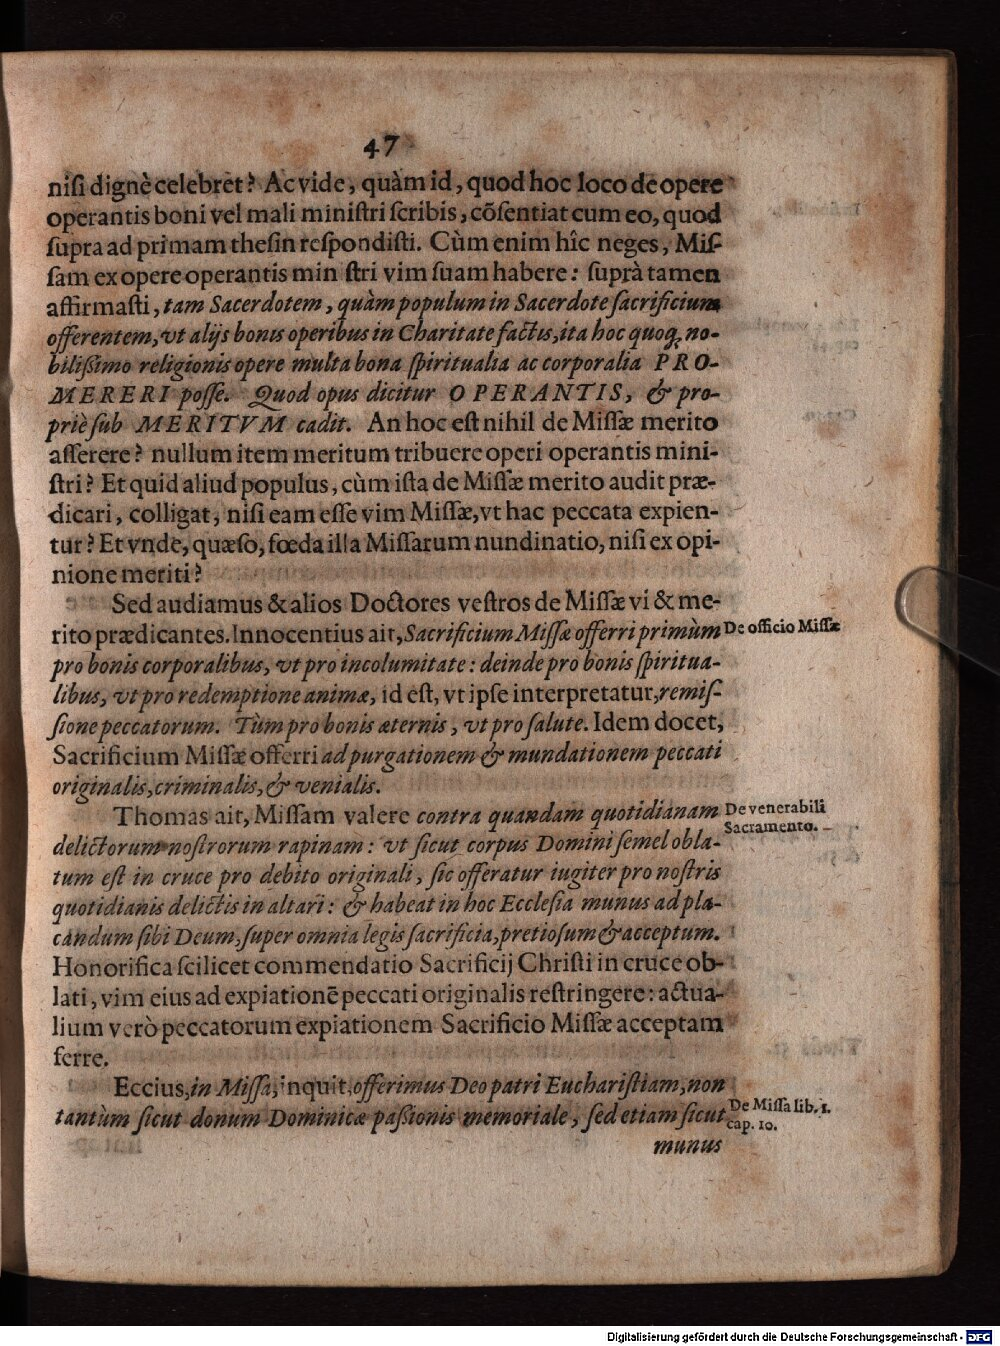 47
niſi dignè celebret? Ac vide, quàm id, quod hoc loco de opere
operantis boni vel mali miniſtri ſcribis, cõſentiat cum eo, quod
ſupra ad primam theſin reſpondiſti. Cùm enim hîc neges, Miſ-
ſam ex opere operantis min ſtri vim ſuam habere: ſuprà tamen
affirmaſti, tam Sacerdotem, quàm populum in Sacerdote ſacrificium
offerentem, vt alijs bonis operibus in Charitate factis, ita hoc quoq; no-
biliſſimo religionis opere multa bona ſpiritualia ac corporalia PRO-
MERERI poſſe. Quod opus dicitur OPERANTIS, & pro-
priè ſub MERITVM cadit. An hoc eſt nihil de Miſſæ merito
aſſerere? nullum item meritum tribuere operi operantis mini-
ſtri? Et quid aliud populus, cùm iſta de Miſſæ merito audit præ-
dicari, colligat, niſi eam eſſe vim Miſſæ, vt hac peccata expien-
tur? Et vnde, quæſo, fœda illa Miſſarum nundinatio, niſi ex opi-
nione meriti?
Sed audiamus & alios Doctores veſtros de Miſſæ vi & me-
rito prædicantes. Innocentius ait, Sacrificium Miſſæ offerri primùm
De officio Miſſæ
pro bonis corporalibus, vt pro incolumitate: deinde pro bonis ſpiritua-
libus, vt pro redemptione animæ, id eſt, vt ipſe interpretatur, remiſ-
ſione peccatorum. Tùm pro bonis æternis, vt pro ſalute. Idem docet,
Sacrificium Miſſæ offerri ad purgationem & mundationem peccati
originalis, criminalis, & venialis.
Thomas ait, Miſſam valere contra quandam quotidianam
De venerabili
Sacramento.
delictorum noſtrorum rapinam: vt ſicut corpus Domini ſemel obla-
tum eſt in cruce pro debito originali, ſic offeratur iugiter pro noſtris
quotidianis delictis in altari: & habeat in hoc Eccleſia munus ad pla-
candum ſibi Deum, ſuper omnia legis ſacrificia, pretioſum & acceptum.
Honorifica ſcilicet commendatio Sacrificij Chriſti in cruce ob-
lati, vim eius ad expiationẽ peccati originalis reſtringere: actua-
lium verò peccatorum expiationem Sacrificio Miſſæ acceptam
ferre.
Eccius, in Miſſa, inquit, offerimus Deo patri Euchariſtiam, non
tantùm ſicut donum Dominicæ paſſionis memoriale, ſed etiam ſicut
De Miſſa lib. 1.
cap. 10.
munus
Digitalisierung gefördert durch die Deutsche Forschungsgemeinschaft - DFG